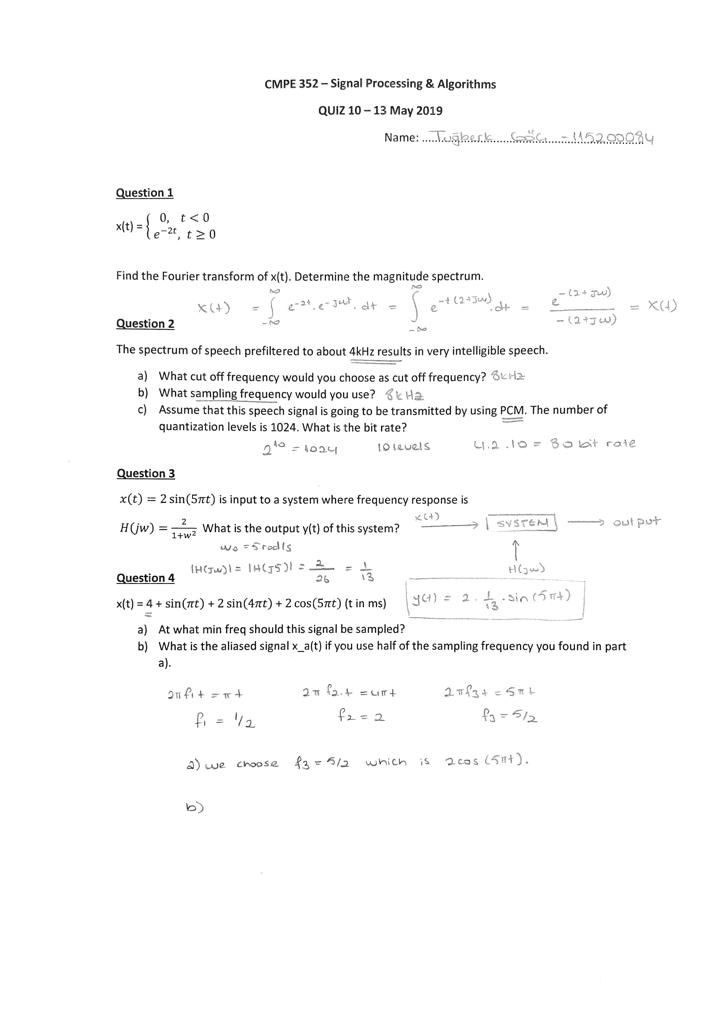 CMPE 352 – Signal Processing & Algorithms
QUIZ 10 – 13 May 2019
Name: .....Tuğberk......Göç...-115200084
Question 1
x(t) = { 0, t < 0
e^{-2t}, t ≥ 0
Find the Fourier transform of x(t). Determine the magnitude spectrum.
X(t) = ∫_{-∞}^{∞} e^{-2t} . e^{-jωt} . dt = ∫_{-∞}^{∞} e^{-t(2+jω)} . dt = e^{-(2+jω)} / -(2+jω) = X(t)
Question 2
The spectrum of speech prefiltered to about 4kHz results in very intelligible speech.
a) What cut off frequency would you choose as cut off frequency? 8kHz
b) What sampling frequency would you use? 8kHz
c) Assume that this speech signal is going to be transmitted by using PCM. The number of
quantization levels is 1024. What is the bit rate?
2^{10} = 1024 10 levels 4.2.10 = 80 bit rate
Question 3
x(t) = 2 sin(5πt) is input to a system where frequency response is
H(jw) = 2/(1+w²) What is the output y(t) of this system?
x(t) → SYSTEM → output
H(jω)
ω0 = 5 rad/s
|H(jω)| = |H(j5)| = 2/26 = 1/13
y(t) = 2 . 1/13 . sin(5πt)
Question 4
x(t) = 4 + sin(πt) + 2 sin(4πt) + 2 cos(5πt) (t in ms)
a) At what min freq should this signal be sampled?
b) What is the aliased signal x_a(t) if you use half of the sampling frequency you found in part
a).
2πf1t = πt 2πf2.t = 4πt 2πf3t = 5πt
f1 = 1/2 f2 = 2 f3 = 5/2
a) we choose f3 = 5/2 which is 2cos(5πt).
b)